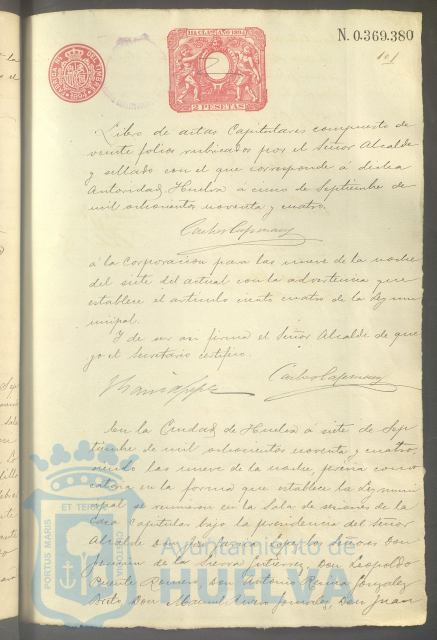 N. 0.369.380
101
11ª CLASE AÑO 1894
2 PESETAS
1894
Libro de actas Capitulares compuesto de
veinte folios rubricados por el Señor Alcalde
y sellado con el que corresponde á dicha
Autoridad, Huelva á cinco de Septiembre de
mil ochocientos noventa y cuatro.
á la Corporacion para las nueve de la noche
del siete del actual con la advertencia que
establece el artículo ciento cuatro de la Ley mu
nicipal.
Y de ser asi firma el Señor Alcalde de que
yo el Secretario certifico.
En la Ciudad de Huelva á siete de Sep
tiembre de mil ochocientos noventa y cuatro,
siendo las nueve de la noche, previa convo
catoria en la forma que establece la Ley muni
cipal se reunieron en la Sala de sesiones de la
Casa Capitular bajo la presidencia del Señor
Alcalde Don los Señores Don
de la Sierra Gutierrez, Don Leopoldo
Romero, Don Antonio Gonzalez
Don Manuel Gonzalez, Don Juan
PORTUS MARIS
ET TERRAE
CUSTODIA
Ayuntamiento de
HUELVA